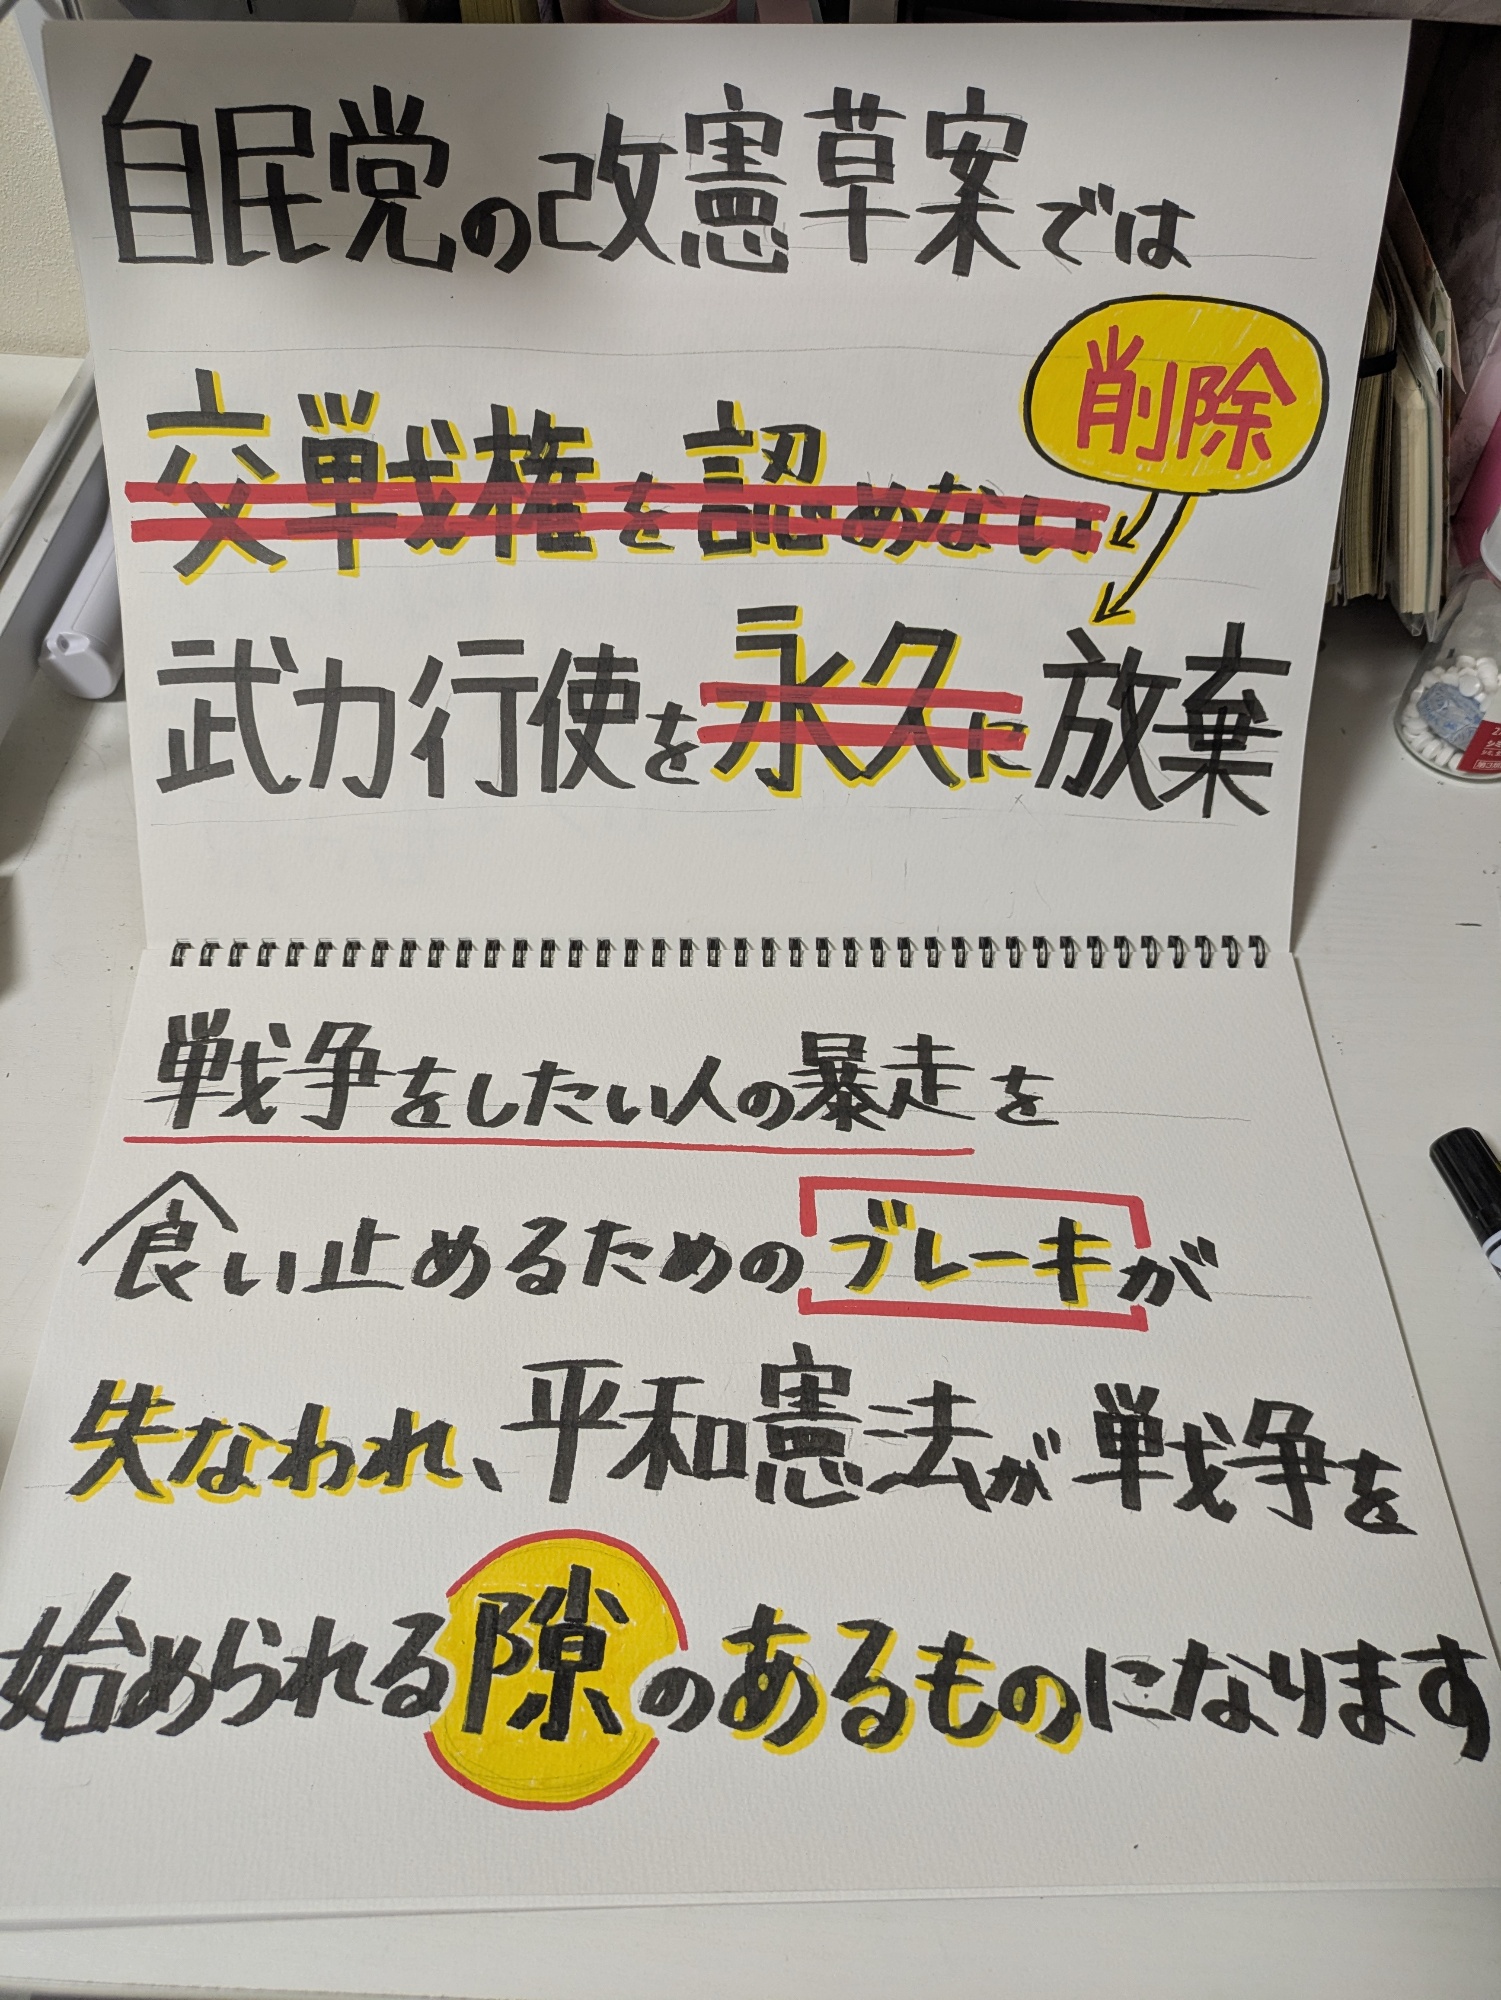 自民党の改憲草案では
削除
交戦権を認めない
武力行使を永久に放棄
戦争をしたい人の暴走を
食い止めるためのブレーキが
失なわれ、平和憲法が戦争を
始められる隙のあるものになります